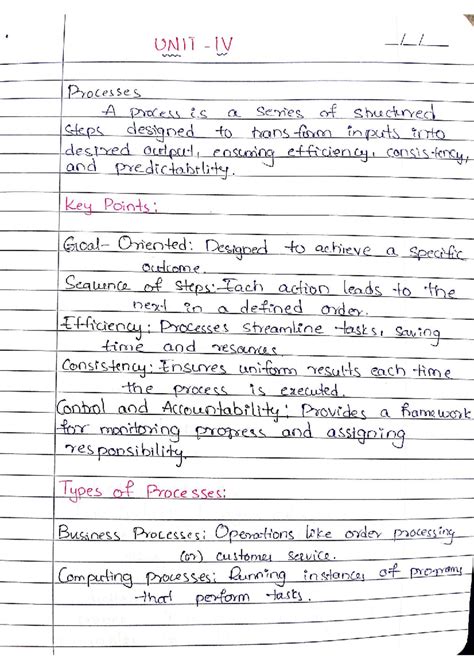 UNIT - IV
Processes
A process is a series of structured
steps designed to transform inputs into
desired output, ensuring efficiency, consistency,
and predictability.
Key Points:
Goal- Oriented: Designed to achieve a specific
outcome.
Sequence of steps: Each action leads to the
next in a defined order.
Efficiency: Processes streamline tasks, saving
time and resources.
Consistency: Ensures uniform results each time
the process is executed.
Control and Accountability: Provides a framework
for monitoring progress and assigning
responsibility.
Types of Processes:
Business Processes: Operations like order processing
(or) customer service.
Computing processes: Running instances of programs
that perform tasks.